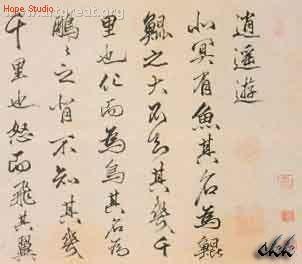 Hope Studio
逍遙遊
北冥有魚其名為鯤
鯤之大不知其幾千
里也化而為鳥其名為
鵬〻之背不知其幾
千里也怒而飛其翼